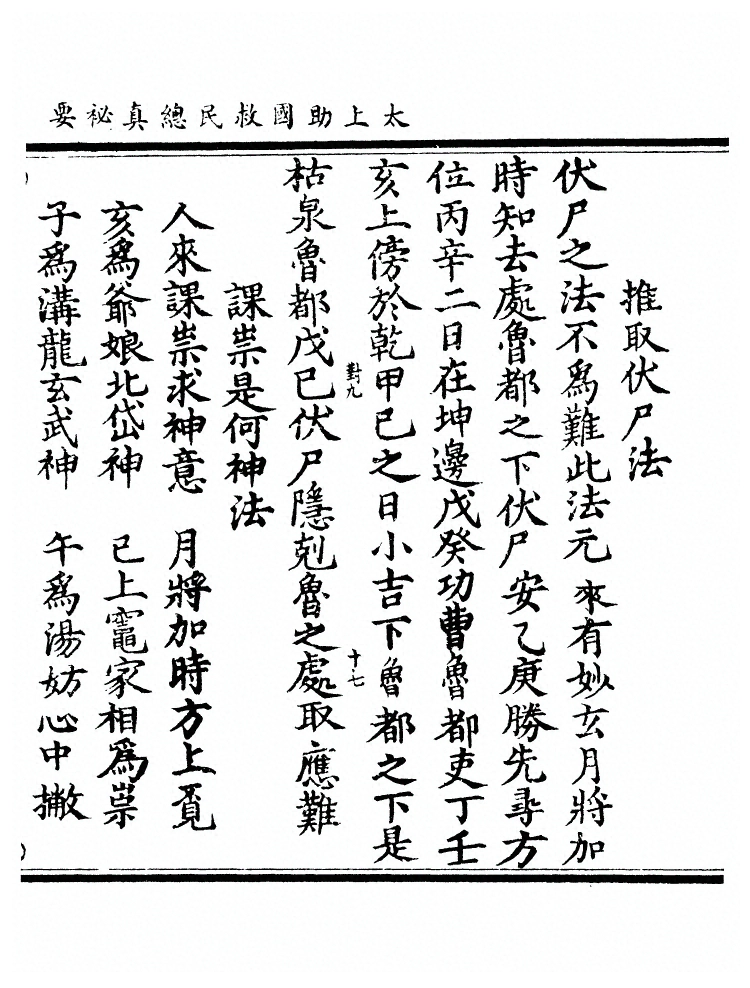 太上助國救民總真祕要
推取伏尸法
伏尸之法不爲難此法元來有妙玄月將加
時知去處魯都之下伏尸安乙庚勝先尋方
位丙辛二日在坤邊戊癸功曹魯都吏丁壬
亥上傍於乾甲巳之日小吉下魯都之下是
對九 十七
枯泉魯都戊巳伏尸隱剋魯之處取應難
課祟是何神法
人來課祟求神意 月將加時方上覓
亥爲爺娘北岱神 巳上竈家相爲祟
子爲溝龍玄武神 午爲湯妨心中撇